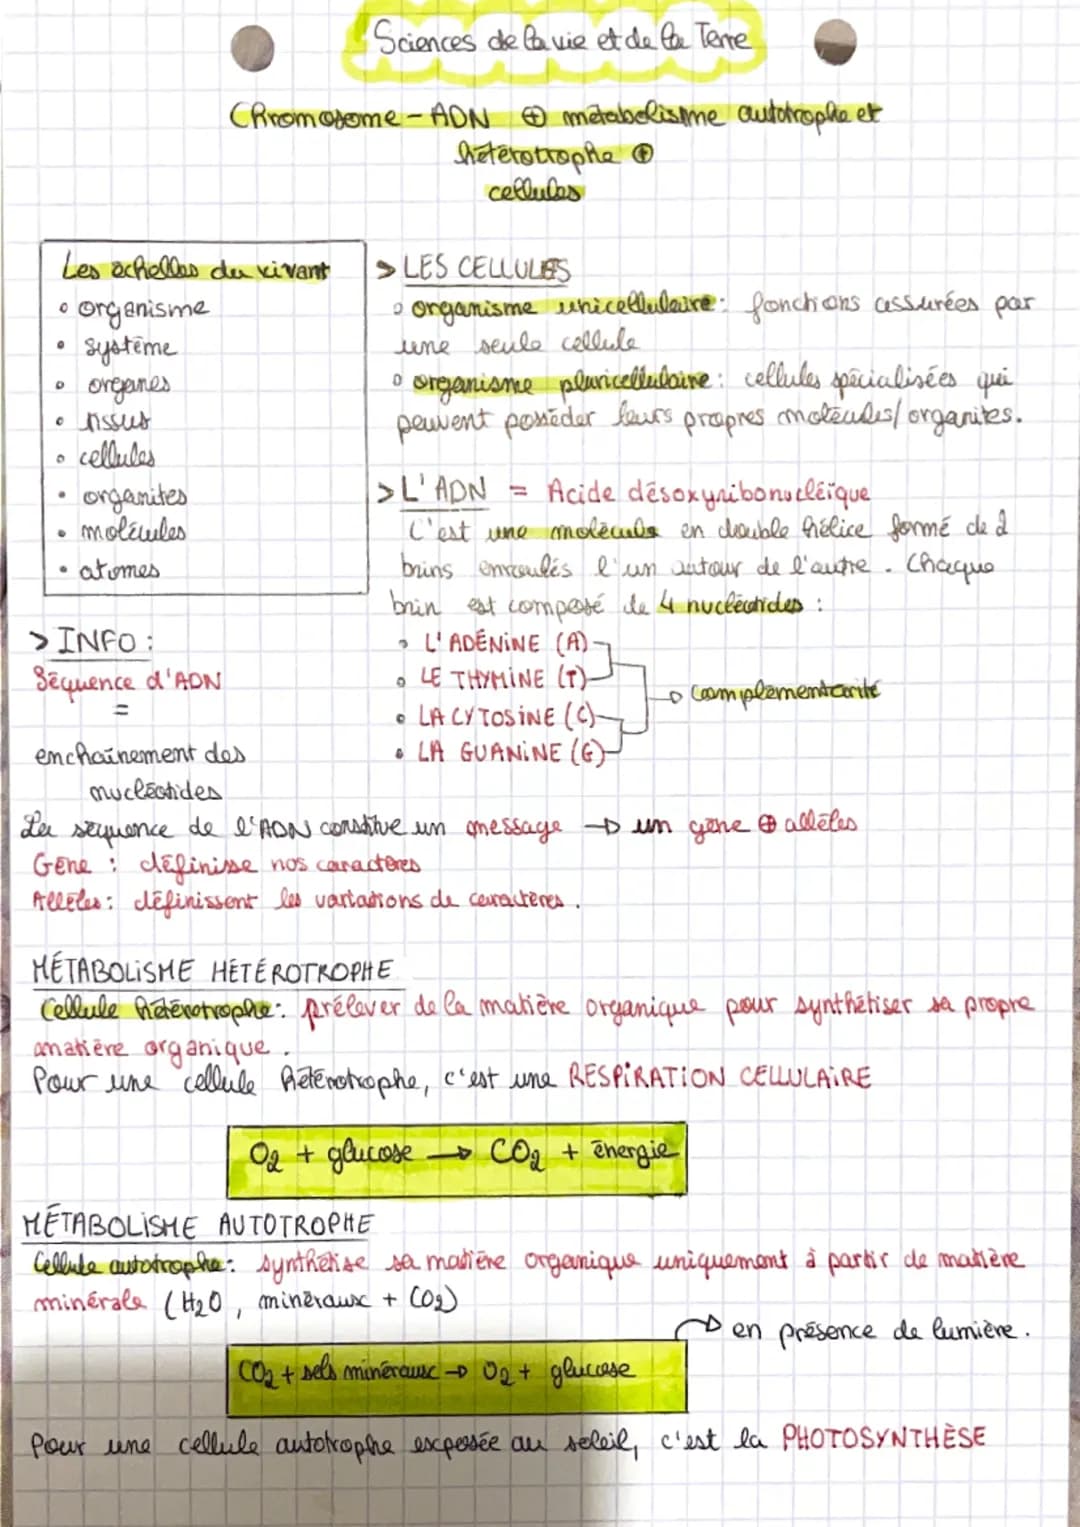 Sciences de la vie et de la Terre
Chromosome - ADN ⊕ métabolisme autotrophe et
hétérotrophe ⊕
cellules
Les échelles du vivant
• organisme
• système
• organes
• tissus
• cellules
• organites
• molécules
• atomes
> LES CELLULES
• organisme unicellulaire : fonctions assurées par
une seule cellule
• organisme pluricellulaire : cellules spécialisées qui
peuvent posséder leurs propres molécules/organites.
> L'ADN = Acide désoxyribonucléïque
C'est une molécule en double hélice formé de 2
brins enroulés l'un autour de l'autre. Chaque
brin est composé de 4 nucléotides :
• L'ADÉNINE (A)
• LE THYMINE (T)
• LA CYTOSINE (C)
• LA GUANINE (G)
→ Complémentarité
> INFO :
Séquence d'ADN
=
enchaînement des
nucléotides
La séquence de l'ADN constitue un message → un gène ⊕ allèles
Gène : définisse nos caractères
Allèles : définissent les variations de caractères.
MÉTABOLISME HÉTÉROTROPHE
Cellule hétérotrophe : prélever de la matière organique pour synthétiser sa propre
matière organique.
Pour une cellule hétérotrophe, c'est une RESPIRATION CELLULAIRE
O2 + glucose → CO2 + énergie
MÉTABOLISME AUTOTROPHE
Cellule autotrophe : synthétise sa matière organique uniquement à partir de matière
minérale (H2O, minéraux + CO2)
→ en présence de lumière.
CO2 + sels minéraux → O2 + glucose
Pour une cellule autotrophe exposée au soleil, c'est la PHOTOSYNTHÈSE